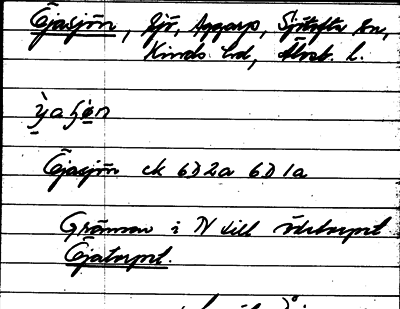 Öjasjön, Sjö, Aggarp, Sjötofta sn,
Kinds hd, Älvsb. l.
Öjasjön ek 6D2a 6D1a
Gränsar i N till Ödstorpet
Öjatorpet.